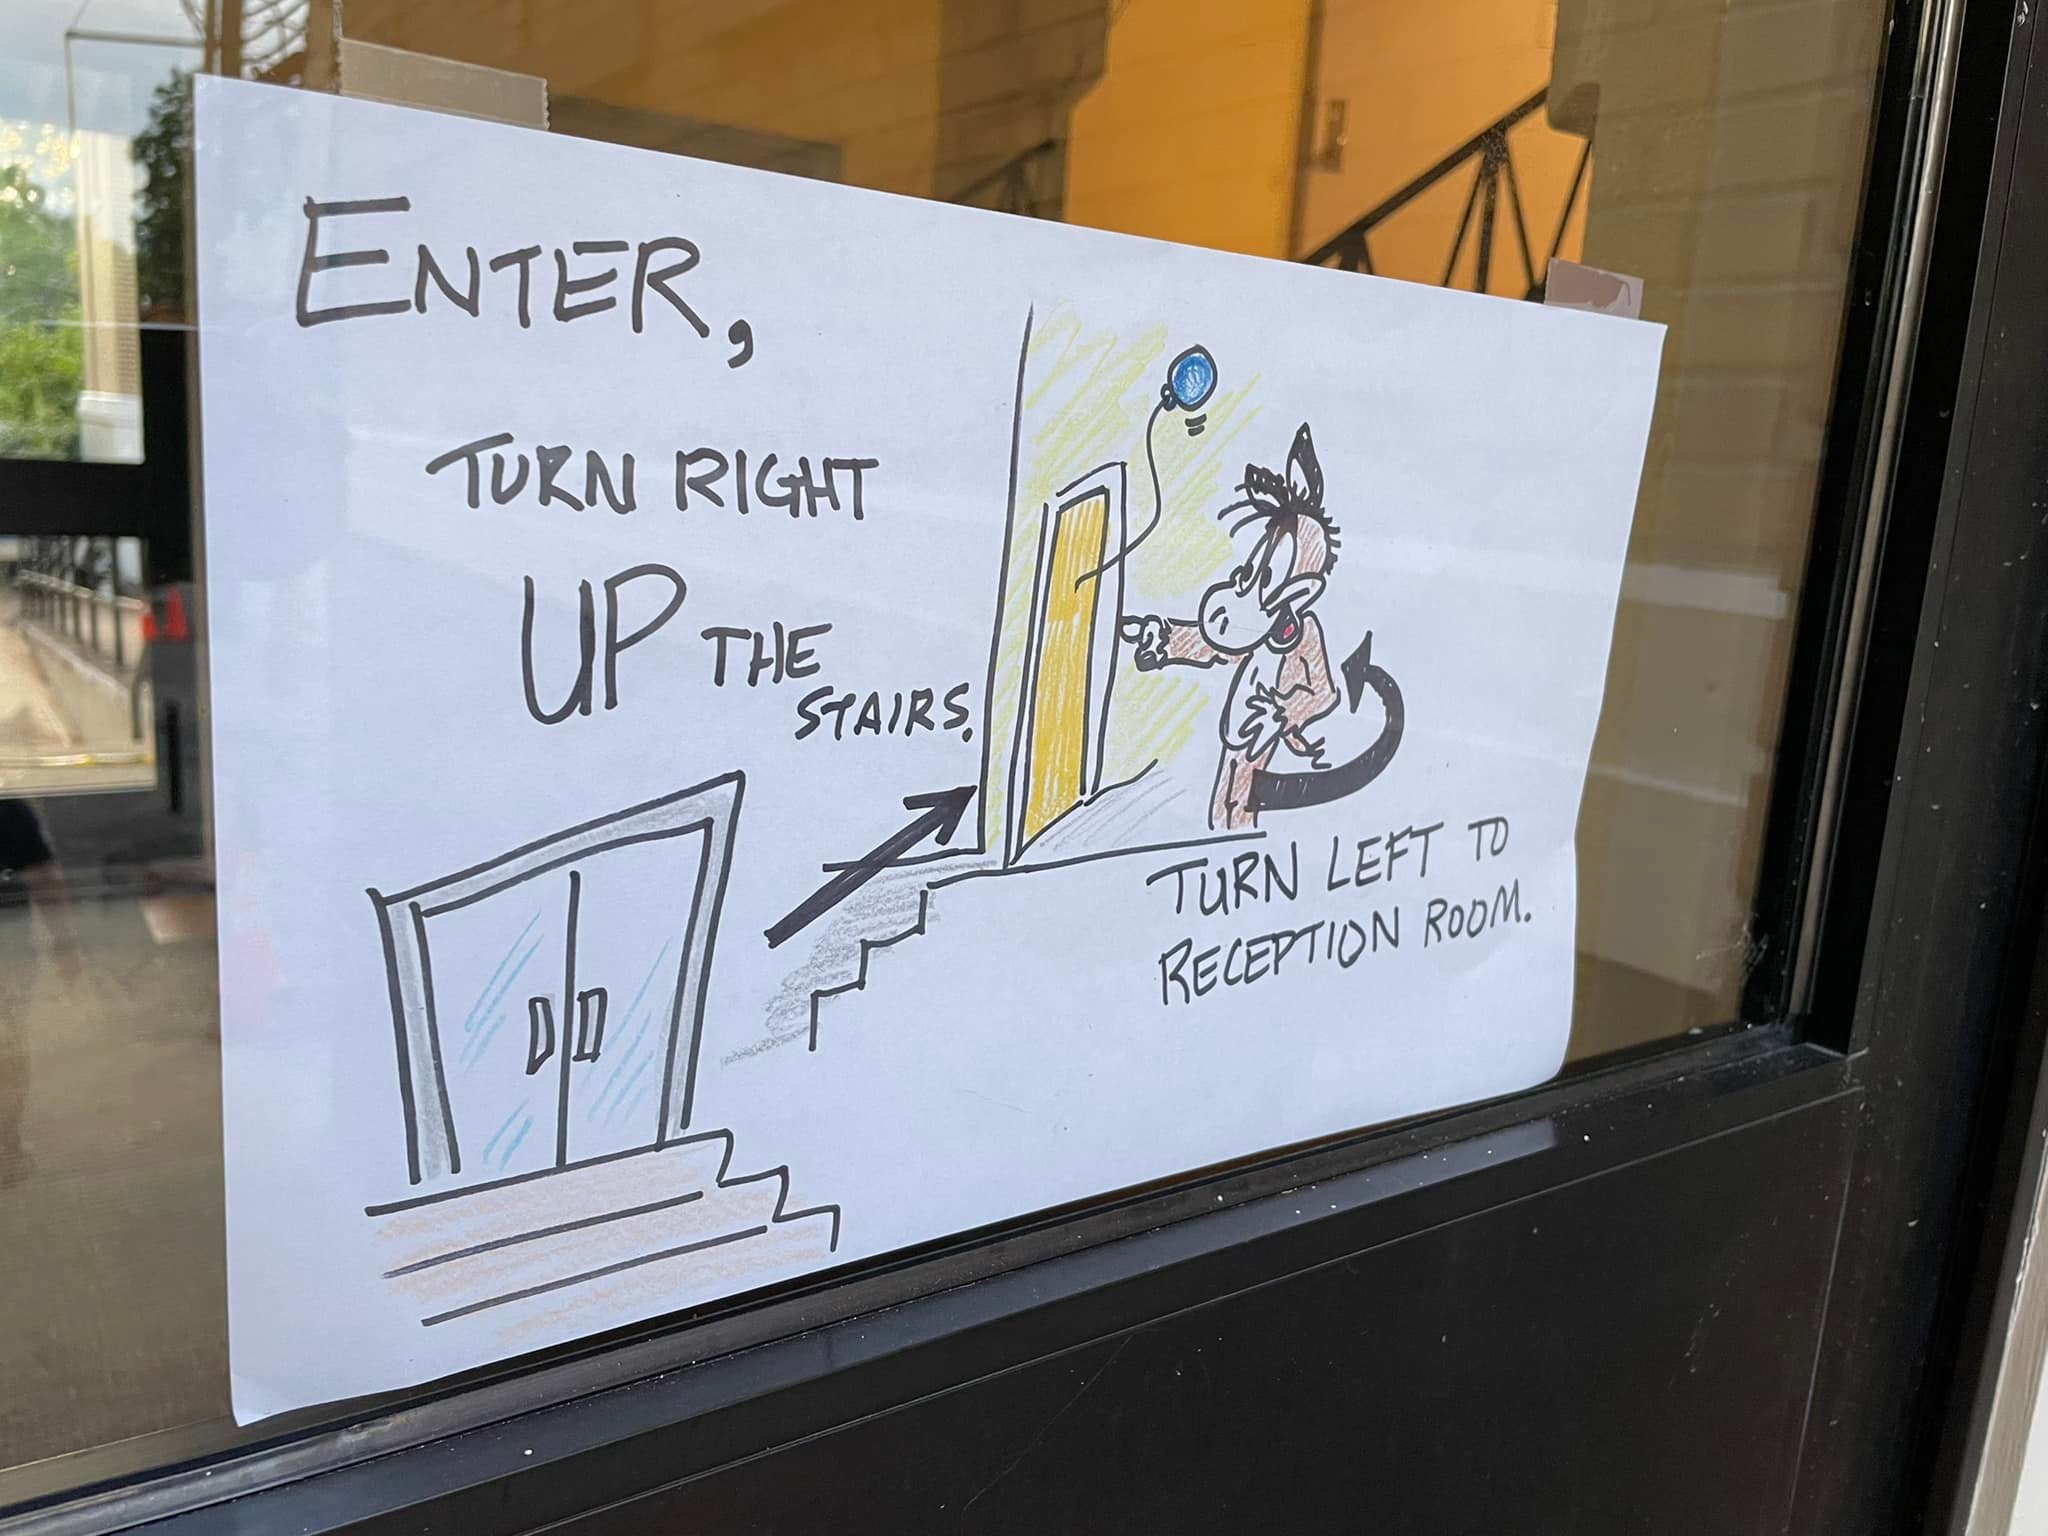 ENTER,
TURN RIGHT
UP THE
STAIRS.
TURN LEFT TO
RECEPTION ROOM.